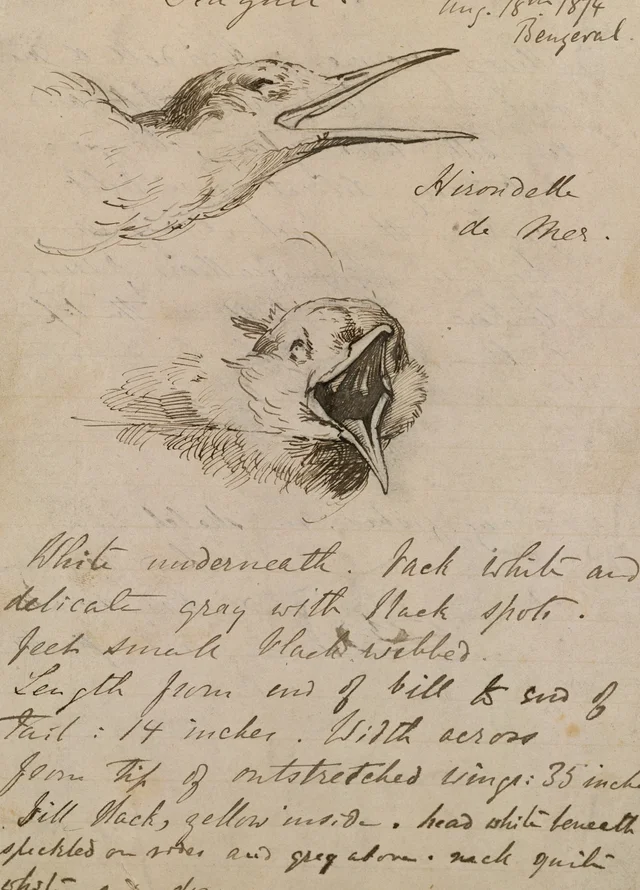 Aug. 18th 1874
Benzeval.
Hirondelle
de Mer.
White underneath. Back white and
delicate gray with black spots.
feet small black webbed.
Length from end of bill to end of
Tail : 14 inches. Width across
from tip of outstretched wings: 35 inche
Bill black, yellow inside. head white beneath
speckled on sides and grey above. neck quite